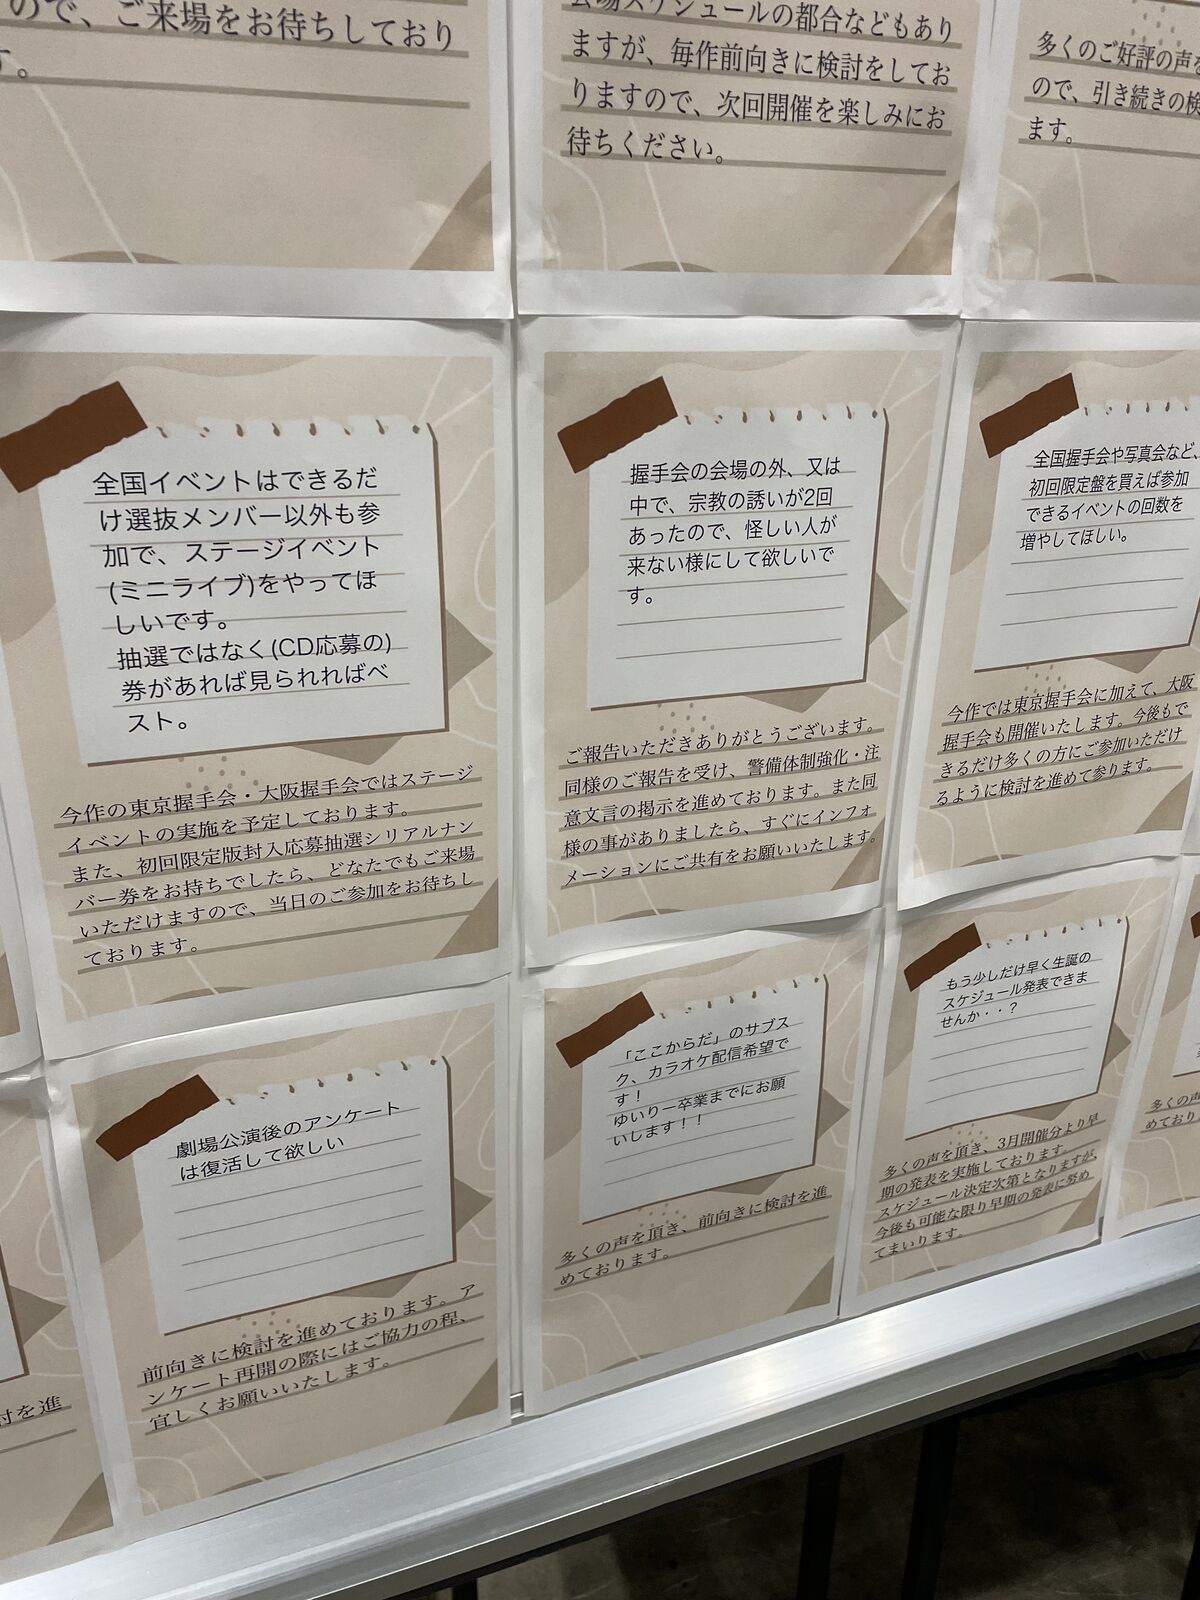 ので、ご来場をお待ちしており
す。
会場スケジュールの都合などもあり
ますが、毎作前向きに検討をしてお
りますので、次回開催を楽しみにお
待ちください。
多くのご好評の声を
ので、引き続きの検
ます。
全国イベントはできるだ
け選抜メンバー以外も参
加で、ステージイベント
(ミニライブ)をやってほ
しいです。
抽選ではなく(CD応募の)
券があれば見られればベ
スト。
今作の東京握手会・大阪握手会ではステージ
イベントの実施を予定しております。
また、初回限定版封入応募抽選シリアルナン
バー券をお持ちでしたら、どなたでもご来場
いただけますので、当日のご参加をお待ちし
ております。
握手会の会場の外、又は
中で、宗教の誘いが2回
あったので、怪しい人が
来ない様にして欲しいで
す。
ご報告いただきありがとうございます。
同様のご報告を受け、警備体制強化・注
意文言の掲示を進めております。また同
様の事がありましたら、すぐにインフォ
メーションにご共有をお願いいたします。
全国握手会や写真会など、
初回限定盤を買えば参加
できるイベントの回数を
増やしてほしい。
今作では東京握手会に加えて、大阪
握手会も開催いたします。今後もで
きるだけ多くの方にご参加いただけ
るように検討を進めて参ります。
討を進
劇場公演後のアンケート
は復活して欲しい
前向きに検討を進めております。ア
ンケート再開の際にはご協力の程、
宜しくお願いいたします。
「ここからだ」のサブス
ク、カラオケ配信希望で
す!
ゆいりー卒業までにお願
いします!!
多くの声を頂き、前向きに検討を進
めております。
もう少しだけ早く生誕の
スケジュール発表できま
せんか・・?
多くの声を頂き、3月開催分より早
期の発表を実施しております。
スケジュール決定次第となりますが、
今後も可能な限り早期の発表に努め
てまいります。
多くの声
めており